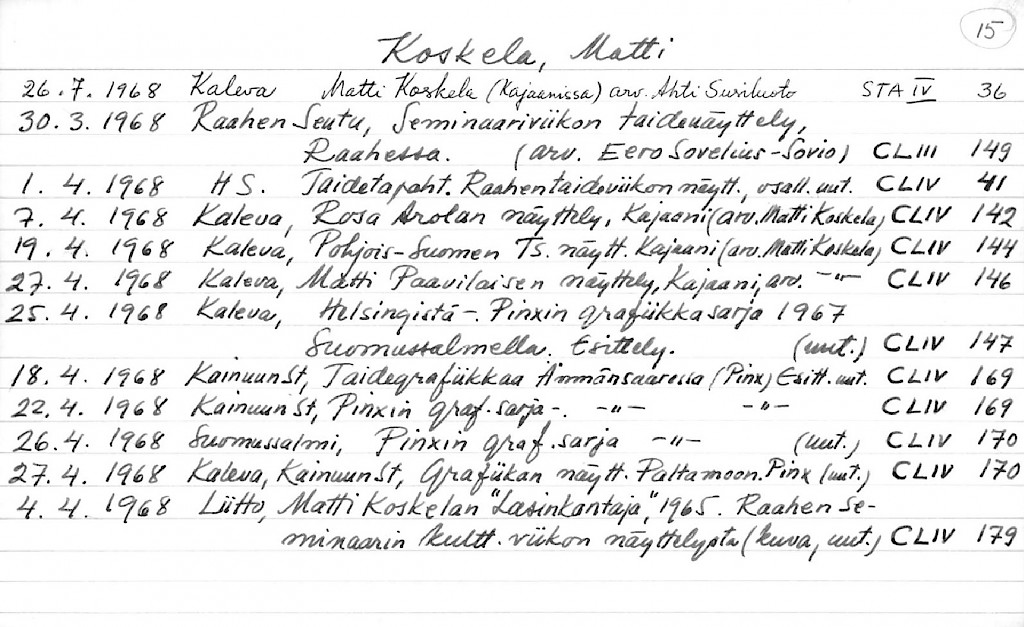 15
Koskela, Matti
26.7.1968 Kaleva Matti Koskela (Kajaanissa) arv. Ahti Susiluoto STA IV 36
30.3.1968 Raahen Seutu, Seminaariviikon taidenäyttely,
Raahessa. (arv. Eero Sovelius-Sovio) CLIII 149
1.4.1968 HS. Taidetapaht. Raahen taideviikon näytt., osall. uut. CLIV 41
7.4.1968 Kaleva, Rosa Arolan näyttely, Kajaani (arv. Matti Koskela) CLIV 142
19.4.1968 Kaleva, Pohjois-Suomen Ts. näytt. Kajaani (arv. Matti Koskela) CLIV 144
27.4.1968 Kaleva, Matti Paavilaisen näyttely, Kajaani, arv. -"- CLIV 146
25.4.1968 Kaleva, Helsingistä -. Pinxin grafiikkasarja 1967
Suomussalmella. Esittely. (uut.) CLIV 147
18.4.1968 Kainuun St, Taidegrafiikkaa Ämmänsaaressa (Pinx) Esitt. uut. CLIV 169
22.4.1968 Kainuun St, Pinxin graf. sarja -. -"- -"- CLIV 169
26.4.1968 Suomussalmi, Pinxin graf. sarja -"- (uut.) CLIV 170
27.4.1968 Kaleva, Kainuun St, Grafiikan näytt. Paltamoon. Pinx (uut.) CLIV 170
4.4.1968 Liitto, Matti Koskelan "Lasinkantaja", 1965. Raahen Se-
minaarin kultt. viikon näyttelystä (kuva, uut.) CLIV 179